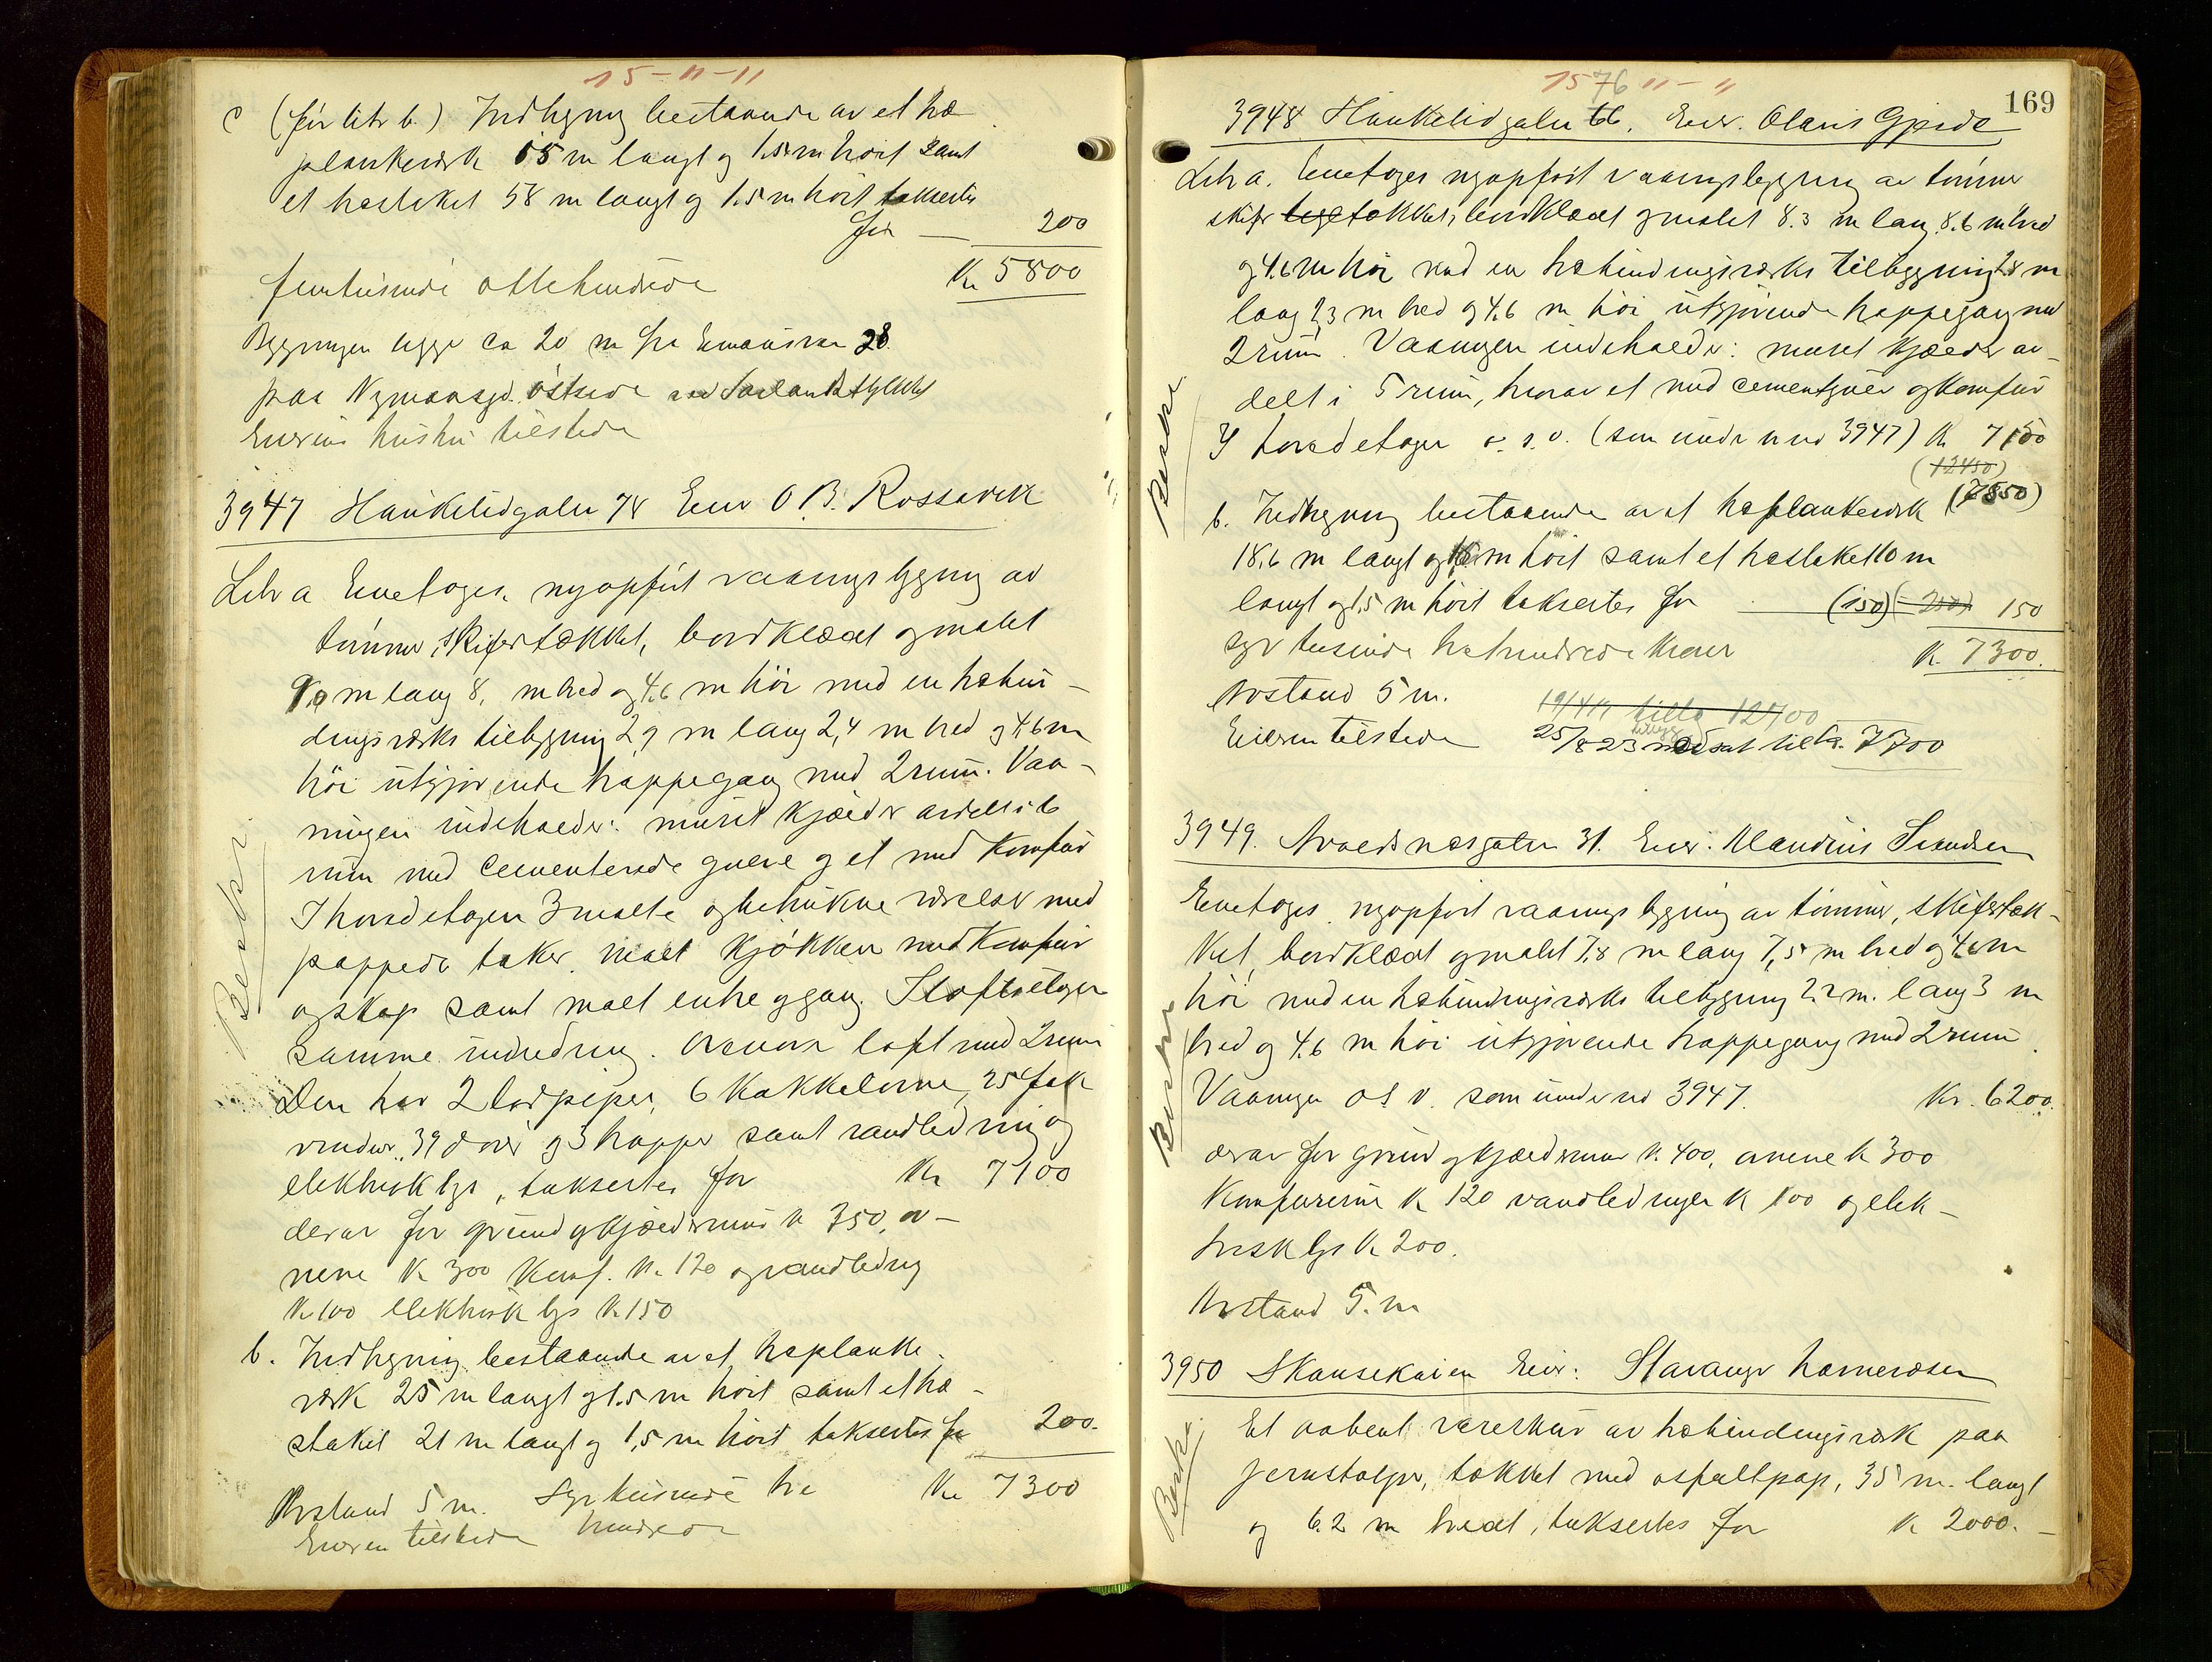 15-11-11
c (før litr b.) Indhegning bestaaende av et træ
plankeværk 65 m langt og 1.5 m høit samt
et træstaket 58 m langt og 1.5 m høit takseres
for — 200
femtusinde ottehundrede Kr 5800
Bygningen ligger ca 20 m fra 28.
paa Nymansgt. østside
Eierens hustru tilstede
3947 Haukeligaten 78 Eier O. B. Rossavik
Litr a Enetages, nyopført vaaningsbygning av
tømmer, skifertækket, bordklædt og malet
m lang 8, m bred og 4.6 m høi med en træbin-
dingsværks tilbygning 2,9 m lang 2,4 m bred og 4.6 m
høi utgjørende trappegang med 2 rum. Vaa-
ningen indeholder: muret kjælder avdelt i 6
rum med cementerede gulve og et med komfur
I hovedetagen 3 malte og betrukne værelser med
pappede taker, malt kjøkken med komfur
og skap samt malt entre og gang. I loftsetagen
samme indredning. Ovenover loft med 2 rum
Den har 2 lodpiper, 6 kakkelovne, 25 fak
vinduer, 39 dører og 3 trapper samt vandledning og
elektrisk lys, takseres for Kr 7100
derav for grund og kjældermur kr 350, ov-
nene kr 300 komf. kr. 120 og vandledning
kr 100 elektrisk lys kr 150
b. Indhegning bestaaende av et træplanke-
værk 25 m langt og 1.5 m høit samt et træ-
stakit 21 m langt og 1,5 m høit takseres for 200.
Avstand 5 m. Syv tusinde tre Kr 7300
Eieren tilstede hundrede
Besikt.
1576 11-11
169
3948 Haukeligaten 66. Eier. Olaus Gjerde
Litr a. Enetages nyopført vaaningsbygning av tømmer
skifer tegl tækket, bordklædt og malet 8.3 m lang, 8.6 m bred
og 4.6 m høi med en træbindingsværks tilbygning 2.8 m
lang 2,3 m bred og 4.6 m høi utgjørende trappegang med
2 rum. Vaaningen indeholder: muret kjælder av-
delt i 5 rum, hvorav et med cementgulv og komfur
I hovedetagen o. s. v. (som under no 3947) Kr 7150
(12450)
(7550)
b. Indhegning bestaaende av et træplankeværk
18.6 m langt og 1.6 m høit samt et træstaket 10 m
langt og 1.5 m høit takseres for — (150) (250) 150
syv tusinde trehundrede kroner Kr. 7300.
Avstand 5 m.
Eieren tilstede
19/4 19 tillæg 12700
25/8 23 nedsat til kr. 7700
3949. Avaldsnesgaten 31. Eier: Maudius Svendsen
Enetages nyopført vaaningsbygning av tømmer, skifertæk-
ket, bordklædt og malet 7.8 m lang 7,5 m bred og 4.6 m
høi med en træbindingsværks tilbygning 2.2 m. lang 3 m
bred og 4.6 m høi utgjørende trappegang med 2 rum.
Vaaningen o s v. som under no 3947. Kr. 6200.
derav for grund og kjældermur kr. 400, ovnene kr 300
komfurerne kr 120 vandledningen kr 100 og elek-
trisk lys kr 200.
Avstand 5. m
3950 Skansekaien Eier: Stavanger havnevæsen
Et aabent vareskur av træbindingsværk paa
jernstolper, tækket med asfaltpap, 35 m. langt
og 6.2 m bredt, takseres for kr 2000.—
Besikt.
Besikt.
Besikt.